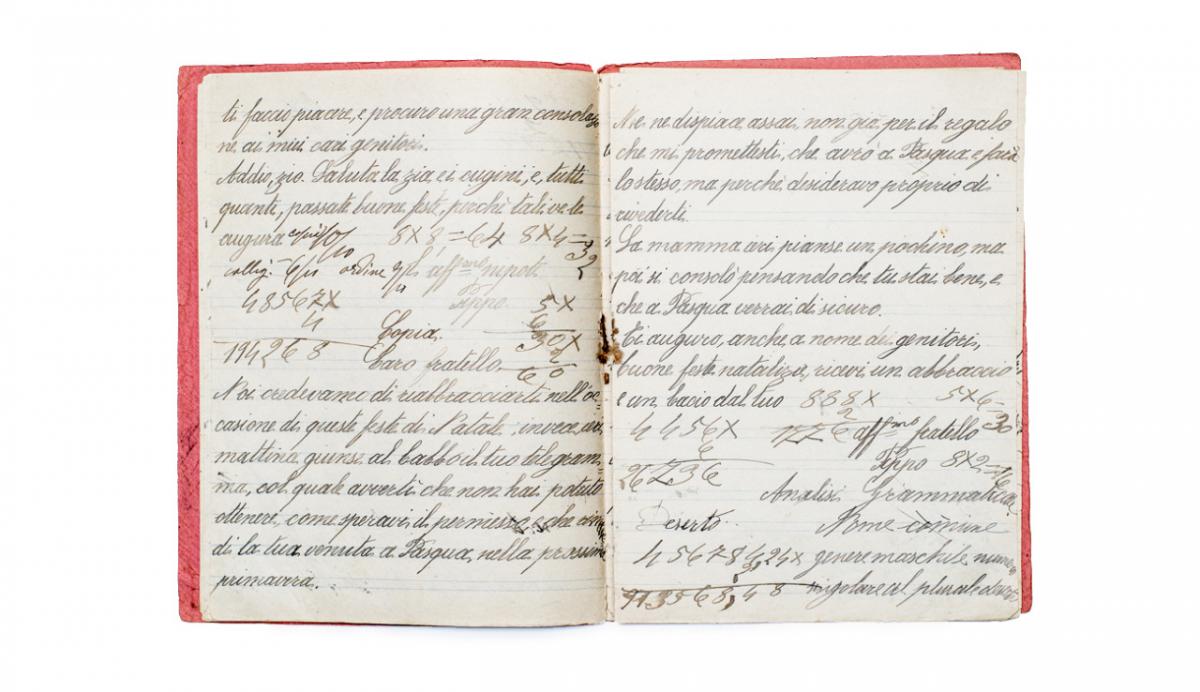 ti faccio piacere, e procuro una gran consolazio
ne ai miei cari genitori.
Addio, zio. Saluta la zia e i cugini, e, tutti
quanti, passate buone feste, perchè tali ve le
augura 8×8=64 8×4=32
ordine aff.mo nipote
48567× Pippo 5×
4 6
194268 Copia. 30×
2
Caro fratello 60
Noi credevamo di riabbracciarti nell'oc=
casione di queste feste di Natale, invece, ieri
mattina giunse al babbo il tuo telegram
ma, col quale avverti che non hai potuto
ottenere, come speravi, il permesso, e che
di la tua venuta a Pasqua, nella prossima
primavera.
Me ne dispiace assai, non già per il regalo
che mi promettesti, che avrò a Pasqua e fa
lo stesso, ma perchè desideravo proprio di
rivederti.
La mamma ieri pianse un pochino, ma
poi si consolò pensando che tu stai bene, e
che a Pasqua verrai di sicuro.
Ti auguro, anche a nome dei genitori,
buone feste natalizie, ricevi un abbraccio
e un bacio dal tuo 888× 5×6=30
2
4456× 1776 aff.mo fratello
6
26736 Pippo 8×2=16
Analisi Grammaticale
Deserto. Nome comune
45678424× genere maschile nume
2
singolare al plurale deserti